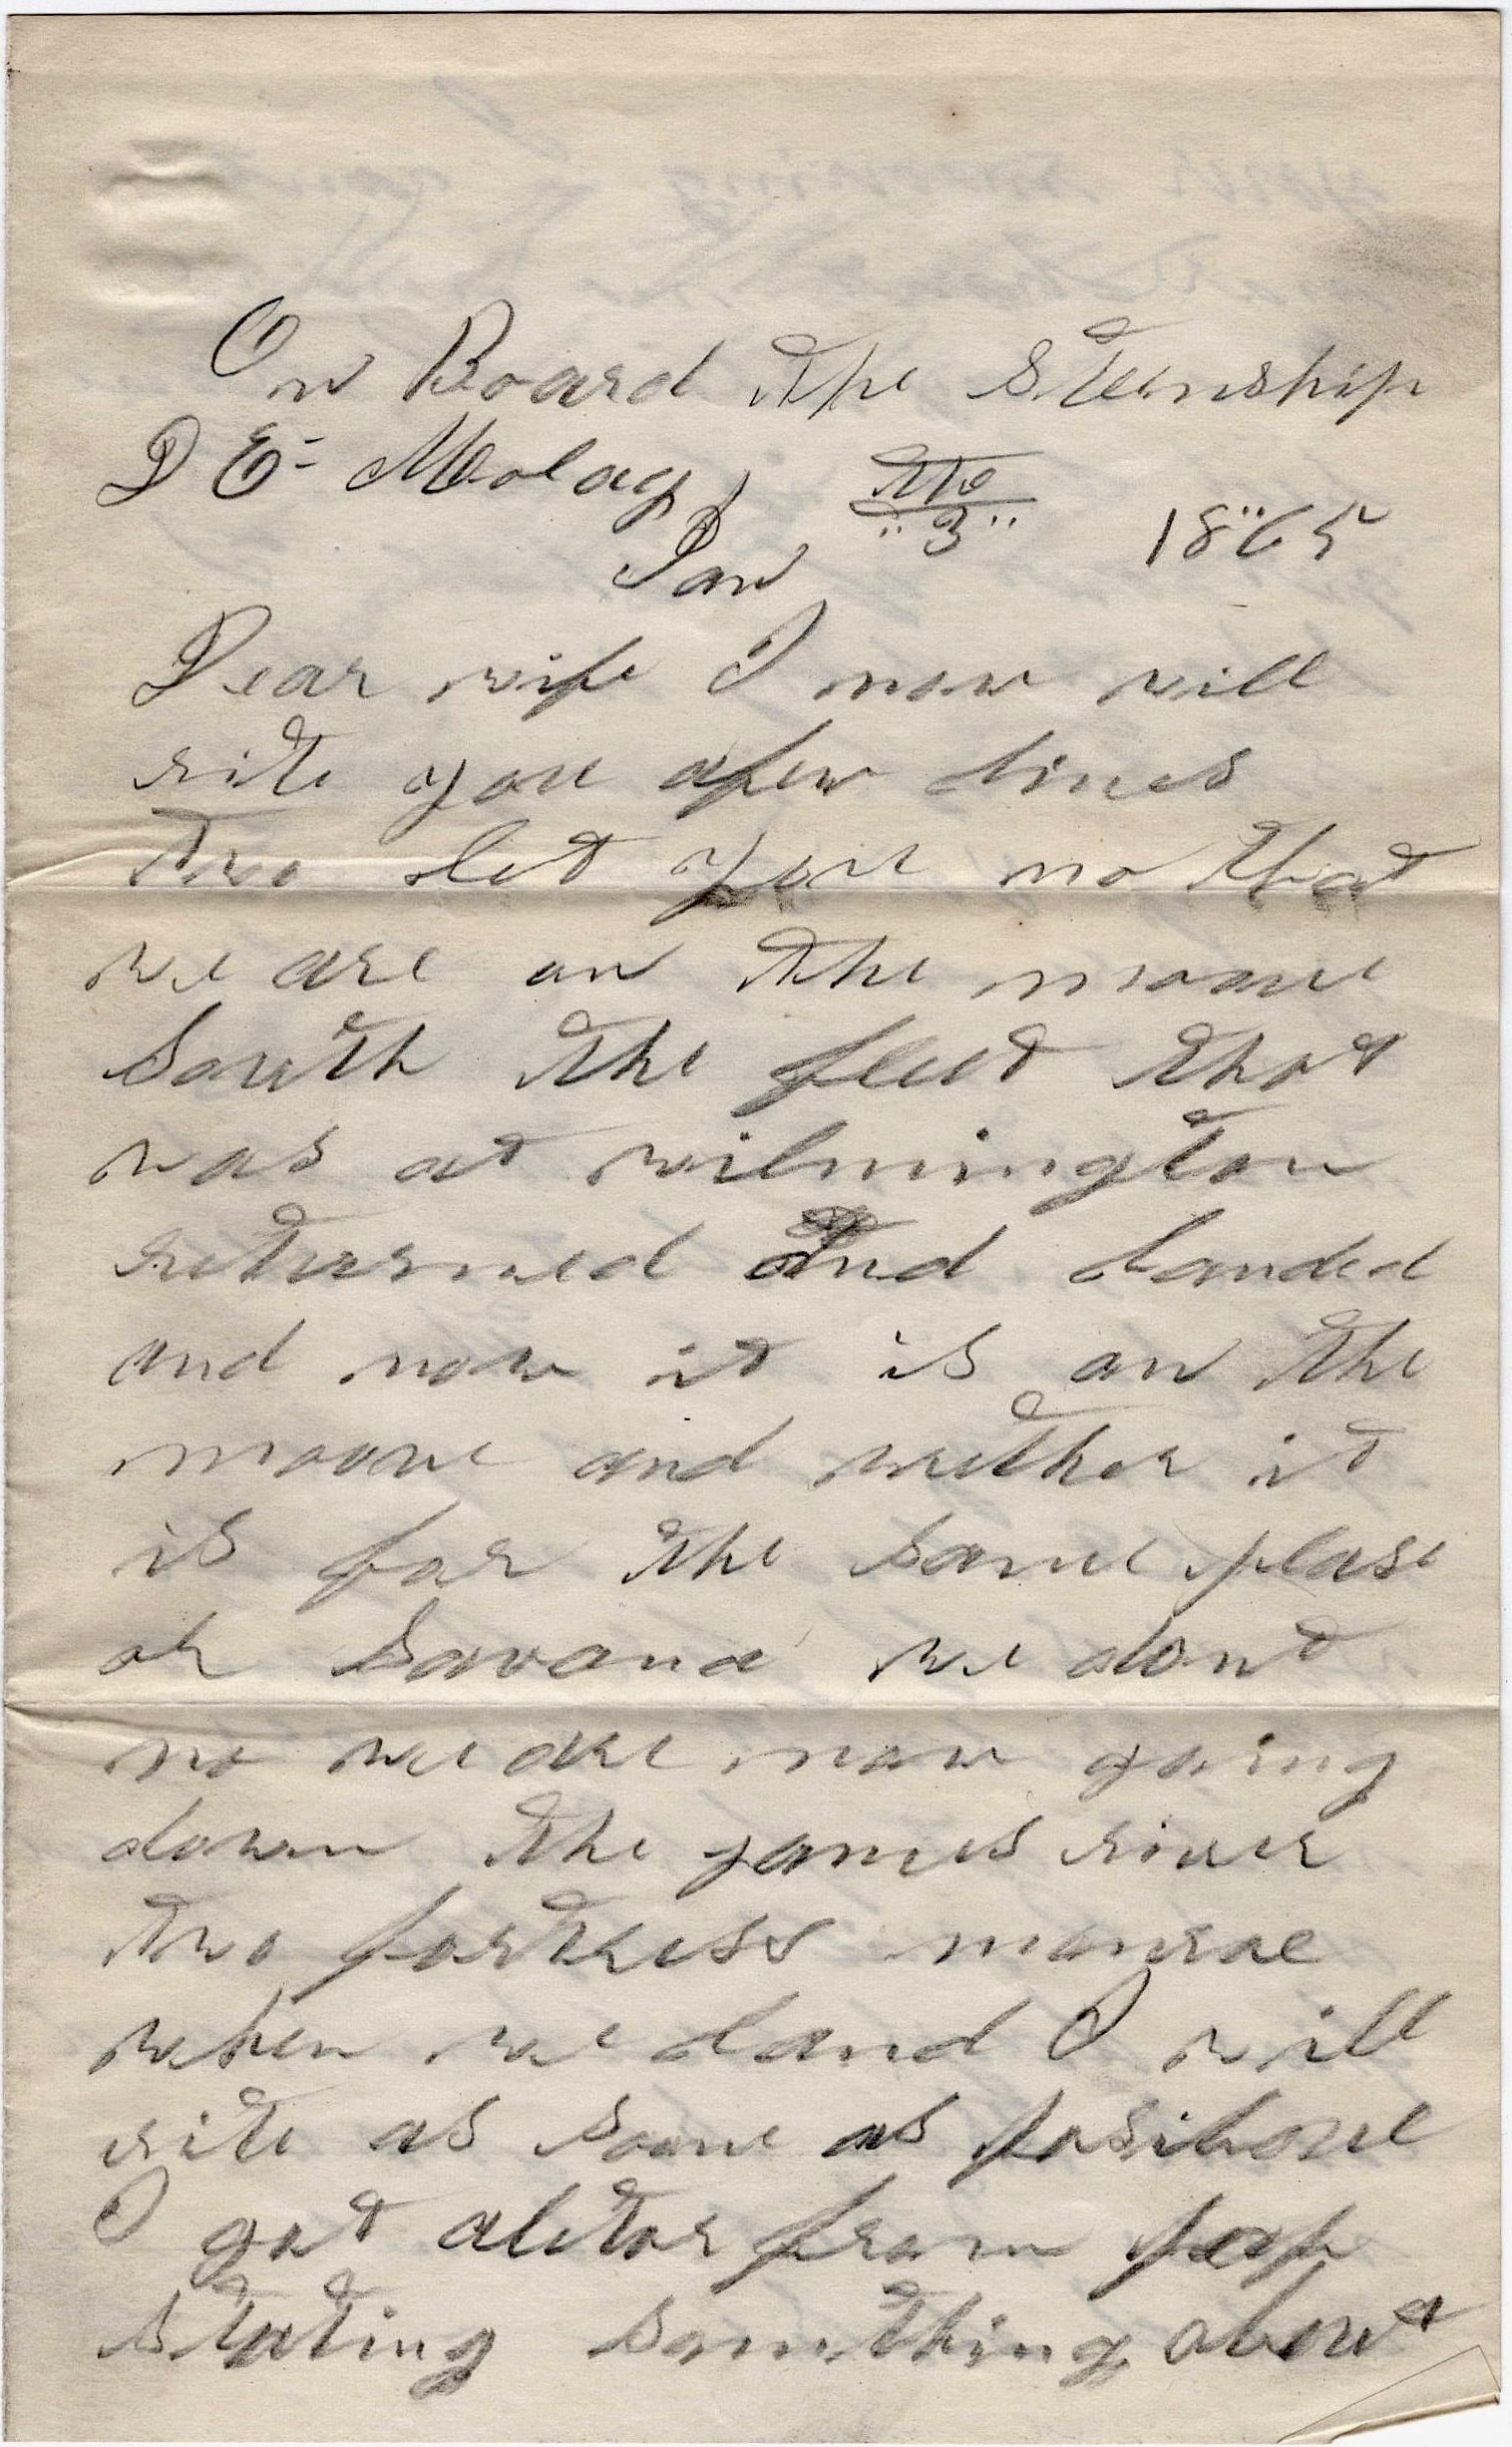 On Board the Steenship
D E- Molay
Jan the "3" 18"65
Dear wife I now will
rite you afew lines
two let you no that
we are on the moove
South the fleet that
was at wilmington
returned and landed
and now it is on the
moove and wether it
is for the same plase
or Savana we dont
no we are now going
down the james river
two fortress monroe
when we land I will
rite as soone as
I got aletor from pap
stating somthing about